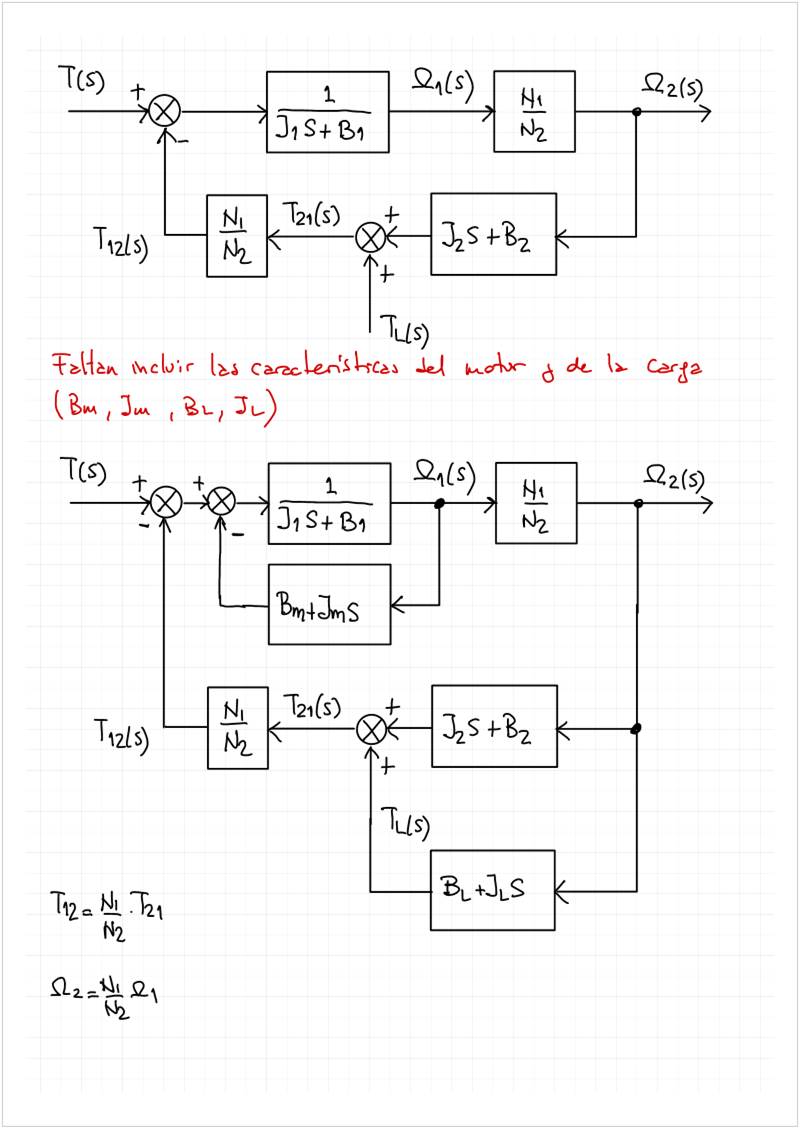 T(s) + - 1 / J1S+B1 Ω1(s) N1/N2 Ω2(s)
T12(s) N1/N2 T21(s) + + J2S+B2
TL(s)
Faltan incluir las características del motor y de la carga
(Bm, Jm, BL, JL)
T(s) + - + - 1 / J1S+B1 Ω1(s) N1/N2 Ω2(s)
Bm+JmS
T12(s) N1/N2 T21(s) + + J2S+B2
TL(s)
BL+JLS
T12=N1/N2·T21
Ω2=N1/N2 Ω1